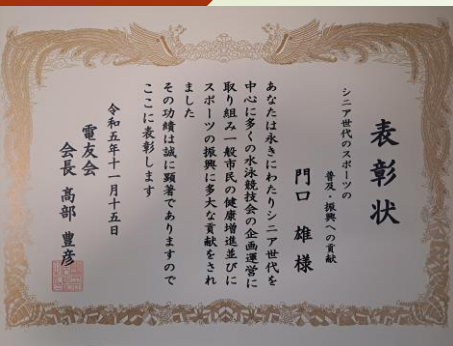 表彰状
シニア世代のスポーツの
普及・振興への貢献
門口 雄 様
あなたは永きにわたりシニア世代を
中心に多くの水泳競技会の企画運営に
取り組み一般市民の健康増進並びに
スポーツの振興に多大な貢献をされ
ました
その功績は誠に顕著でありますので
ここに表彰します
令和五年十一月十五日
電友会
会長 髙部 豊彦